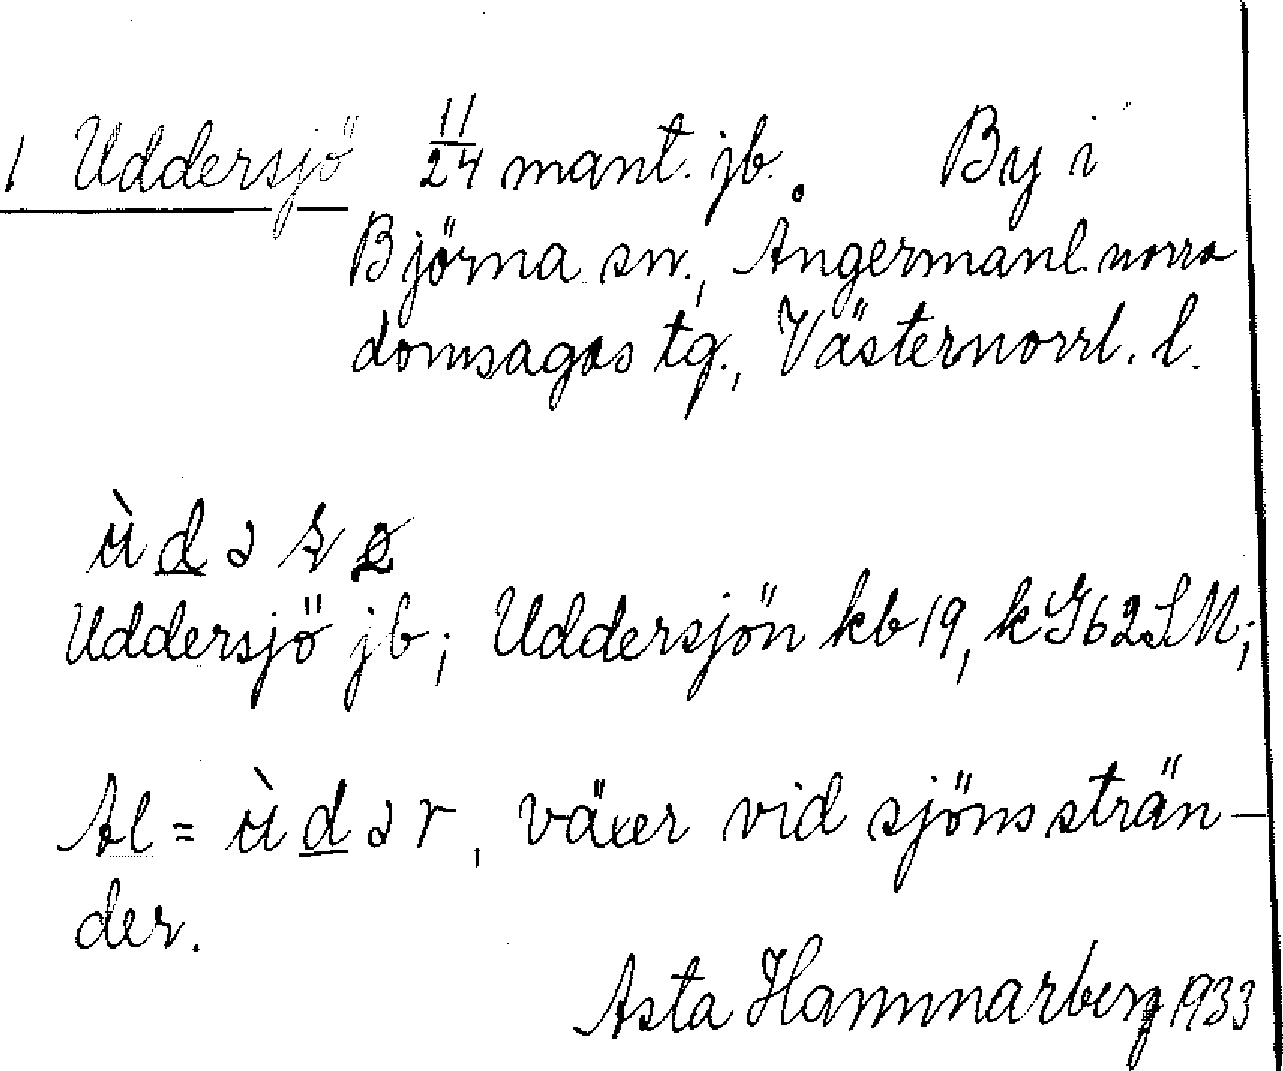 1 Uddersjö 11/24 mant. jb. By i
Björna sn., Ångermanl. norra
domsagas tg., Västernorrl. l.
Uddersjö jb; Uddersjön kb 19, kG62SM;
Al = ùdər, växer vid sjöns strän-
der.
Asta Hammarberg 1933